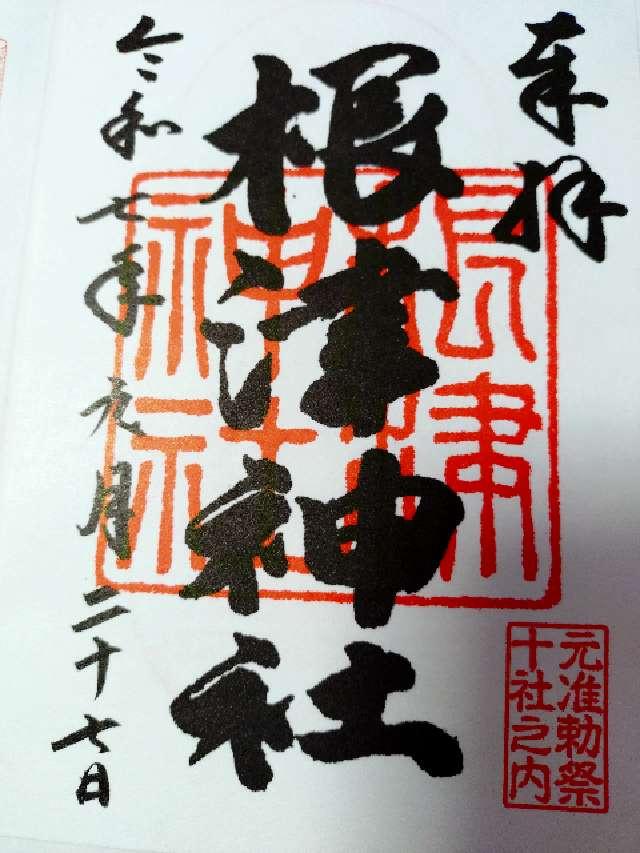 奉拝
根津神社
根津
神社
元准勅祭
十社之内
令和七年元月二十七日